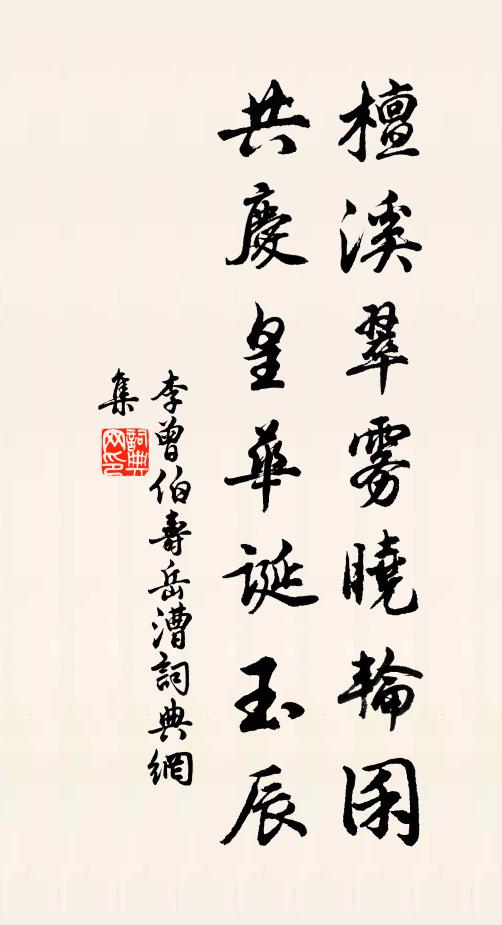 檀溪翠雾曉輪囷
共慶皇華誕玉辰
李曾伯壽岳漕詞典網
集
詞典網印